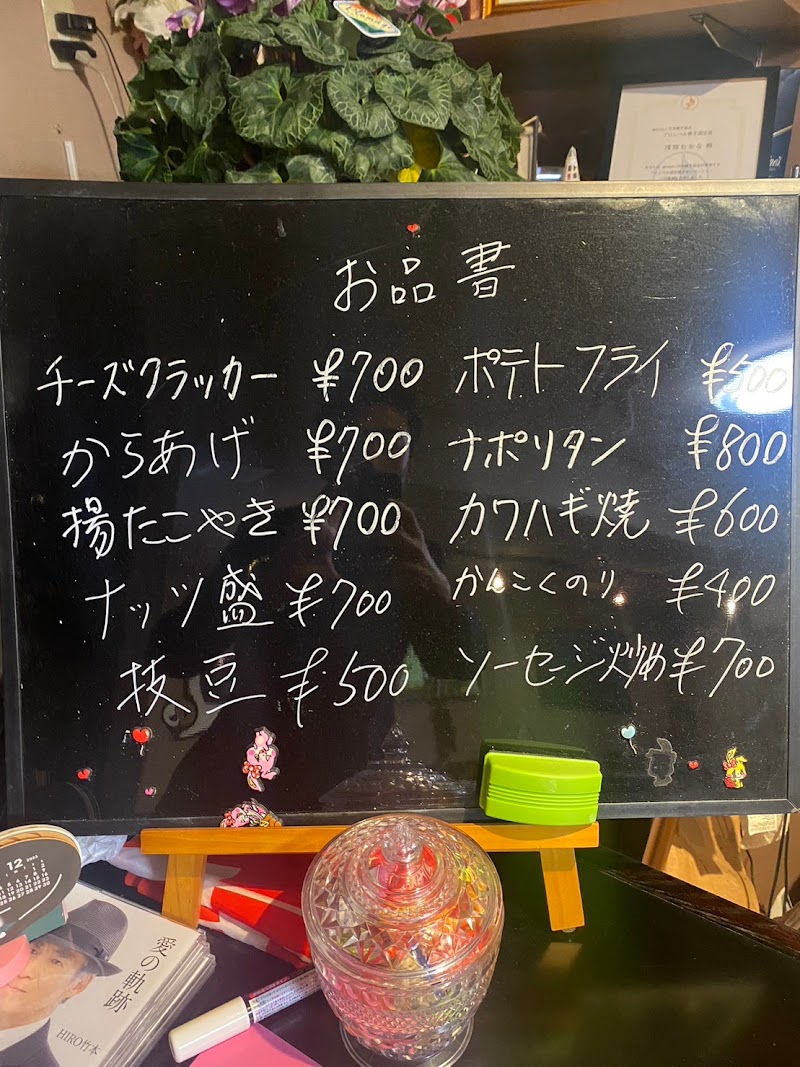 お品書
チーズクラッカー ¥700
からあげ ¥700
揚たこやき ¥700
ナッツ盛 ¥700
枝豆 ¥500
ポテトフライ ¥500
ナポリタン ¥800
カワハギ焼 ¥600
かんこくのり ¥400
ソーセージ炒め ¥700
12, 2023
愛の軌跡
HIRO竹本